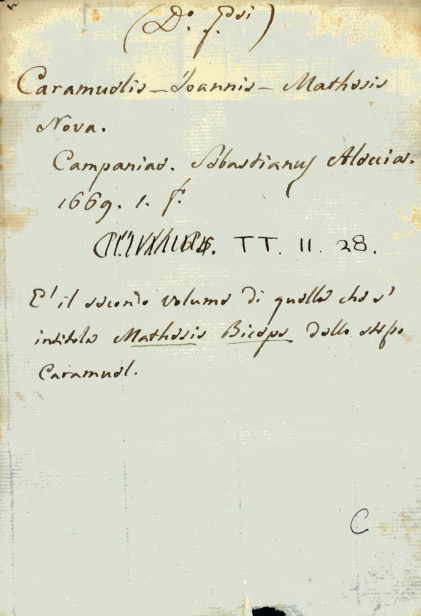 (Do. f. Psi)
Caramuelis – Joannis – Mathesis
Nova.
Campaniae. Sebastianus Aloccius.
1669. 1. f.
TT. 11. 28.
E' il secondo volume di quello che s'
intitola Mathesis Biceps dello stesso
Caramuel.
C